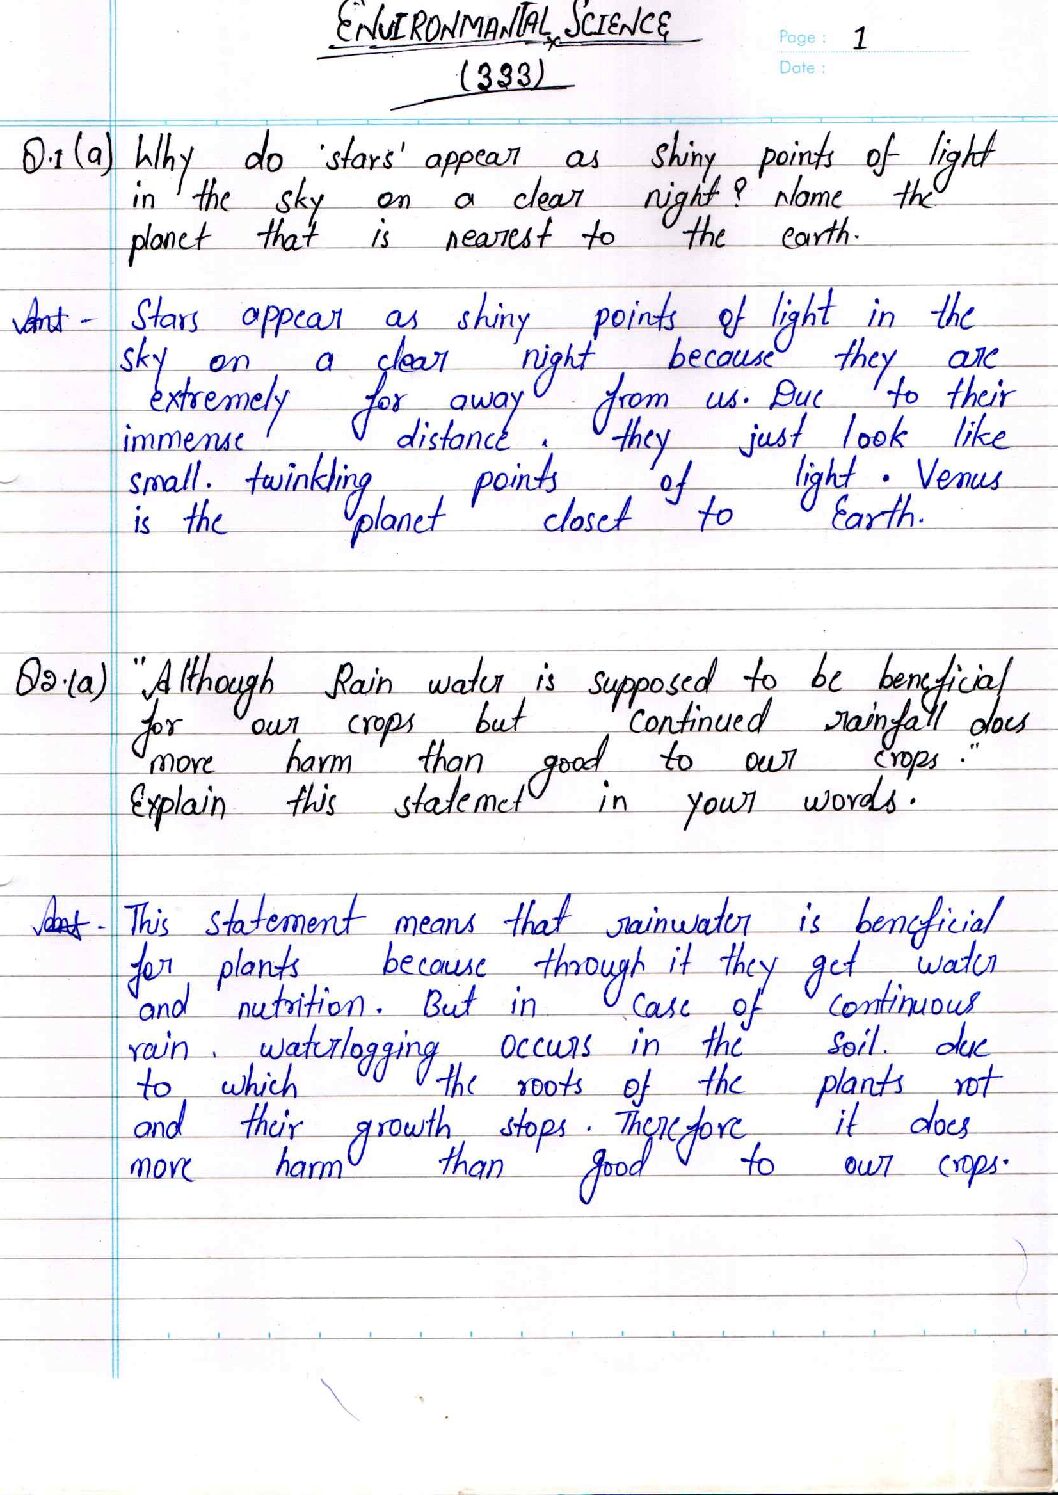 ENVIRONMANTAL SCIENCE
(333)
Page : 1
Date :
Q.1(a) Why do 'stars' appear as shiny points of light
in the sky on a clear night? Name the
planet that is nearest to the earth.
Ans - Stars appear as shiny points of light in the
sky on a clear night because they are
extremely for away from us. Due to their
immense distance. they just look like
small. twinkling points of light. Venus
is the planet closet to Earth.
Q2.(a) "Although Rain water is supposed to be beneficial
for our crops but continued rainfall does
more harm than good to our crops."
Explain this statemet in your words.
Ans - This statement means that rainwater is beneficial
for plants because through it they get water
and nutrition. But in case of continuous
rain. waterlogging occurs in the soil. due
to which the roots of the plants rot
and their growth stops. Therefore it does
more harm than good to our crops.